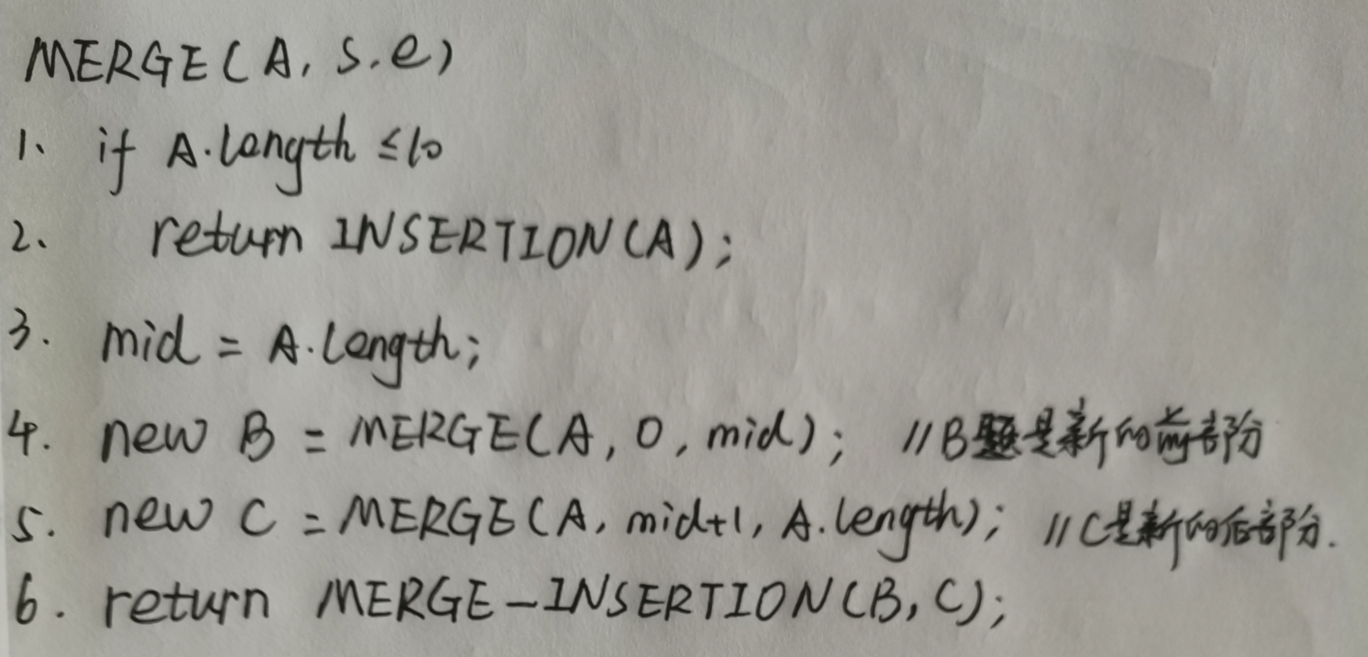 MERGE(A, s, e)
1、 if A.length ≤10
2、 return INSERTION(A);
3. mid = A.length;
4. new B = MERGE(A, 0, mid); //B是新的前部分
5. new C = MERGE(A, mid+1, A.length); //C是新的后部分.
6. return MERGE-INSERTION(B, C);